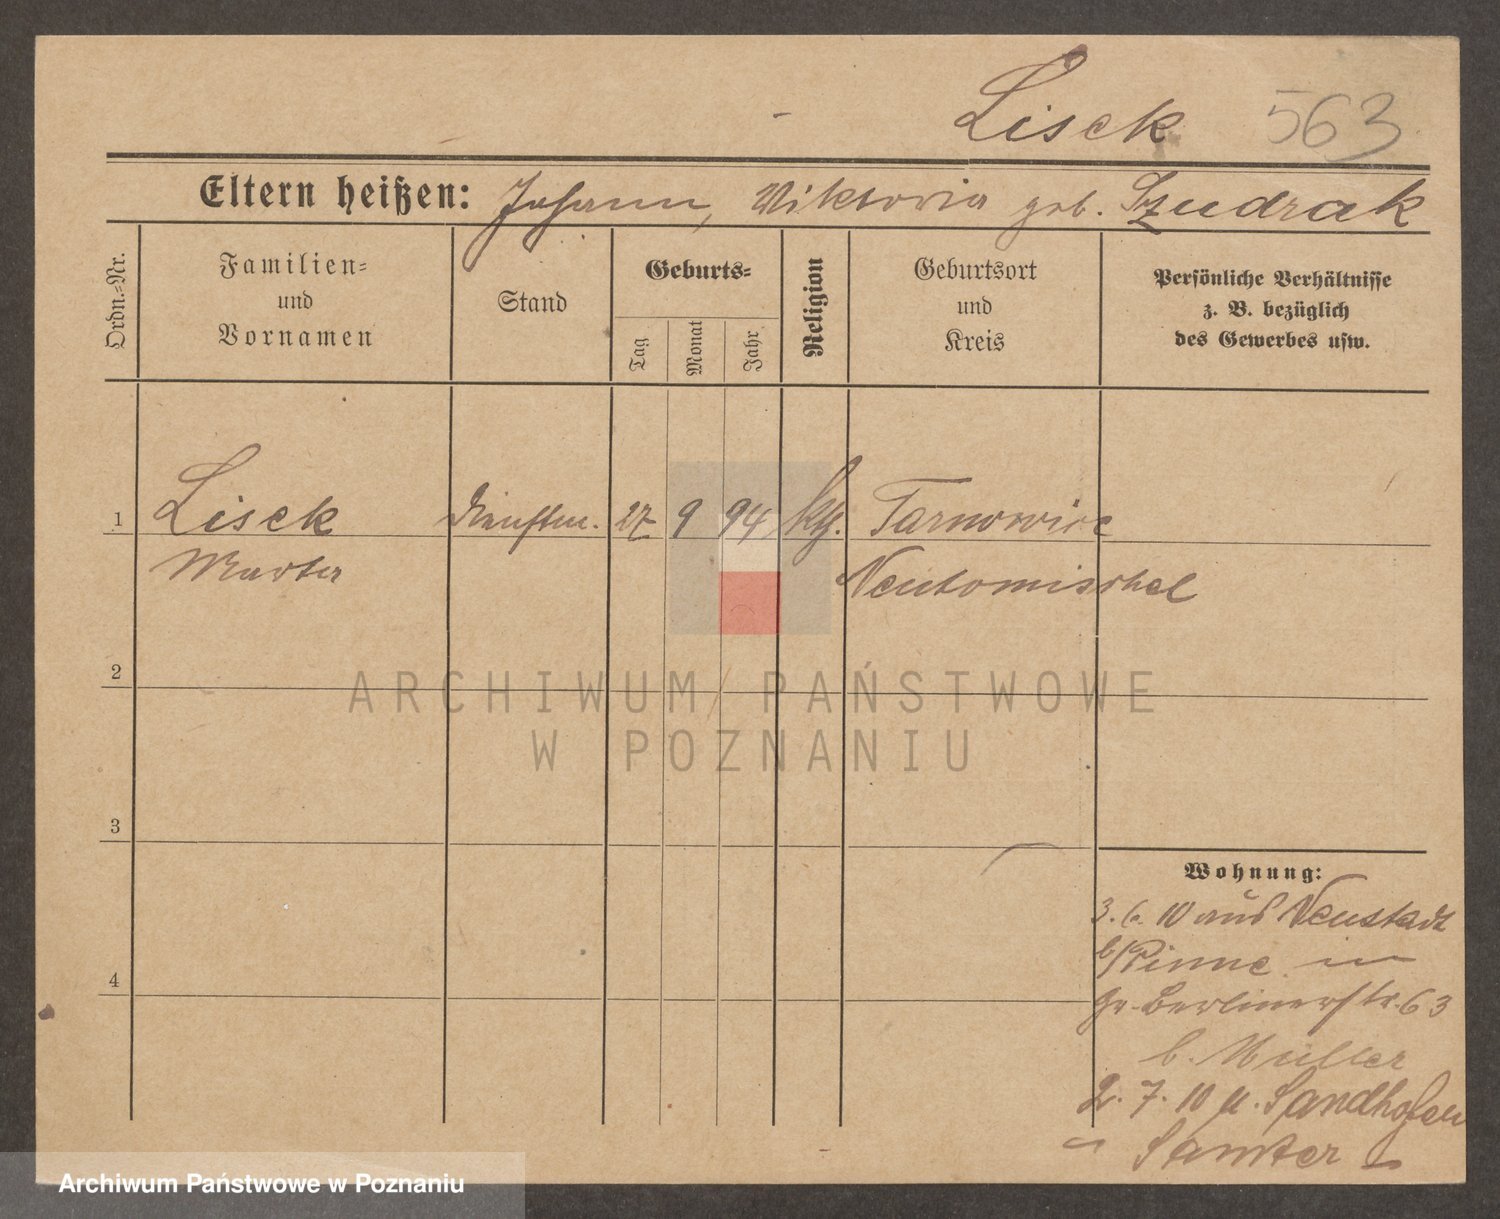 Lisek 563
Eltern heißen: Johann, Viktoria geb. Szudrak
Ordn.=Nr.
Familien=
und
Vornamen
Stand
Geburts=
Tag
Monat
Jahr
Religion
Geburtsort
und
Kreis
Persönliche Verhältnisse
z. B. bezüglich
des Gewerbes usw.
1 Lisek 27 9 94 kth. Tarnowice
Neutomischel
2
ARCHIWUM PAŃSTWOWE
W POZNANIU
3
Wohnung:
3. 6. 10 aus Neustadt
b/Pinne in
Gr. Berlinerstr. 63
b. Müller
4
2. 7. 10 n. Sandhofen
Samter
Archiwum Państwowe w Poznaniu